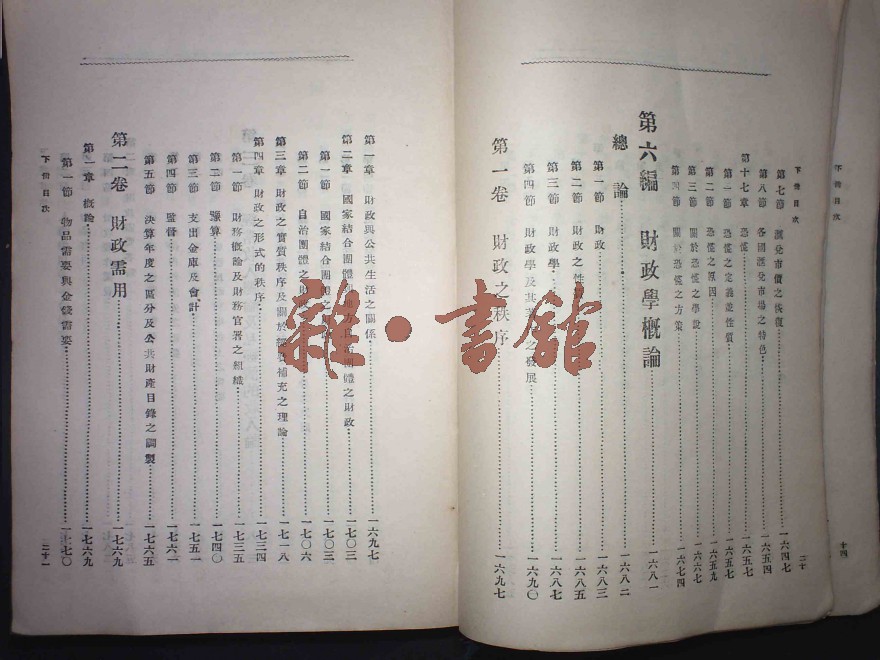 下冊目次
十四
下冊目次
二十
第七節 匯兌市價之恢復 一六四七
第八節 各國匯兌市場之特色 一六五四
第十七章 恐慌 一六五七
第一節 恐慌之定義能性質 一六五七
第二節 恐慌之原因 一六五九
第三節 關於恐慌之學說 一六六七
第四節 關於恐慌之方策 一六七四
第六編 財政學概論 一六八一
總論 一六八二
第一節 財政 一六八三
第二節 財政之性 一六八五
第三節 財政學 一六八七
第四節 財政學及其 之發展 一六九〇
第一卷 財政之秩序 一六九七
第一章 財政與公共生活之關係 一六九七
第二章 國家結合團體 自治團體之財政 一七〇三
第一節 國家結合團體之 一七〇三
第二節 自治團體之財 一七〇六
第三章 財政之實質秩序及關於 補充之理論 一七一八
第四章 財政之形式的秩序 一七三四
第一節 財務概論及財務官署之組織 一七三五
第二節 豫算 一七四〇
第三節 支出金庫及會計 一七五一
第四節 監督 一七六一
第五節 決算年度之區分及公共財產目錄之調製 一七六五
第二卷 財政需用 一七六九
第一章 概論 一七六九
第一節 物品需要與金錢需要 一七七〇
下冊目次
二十一
雜·書館